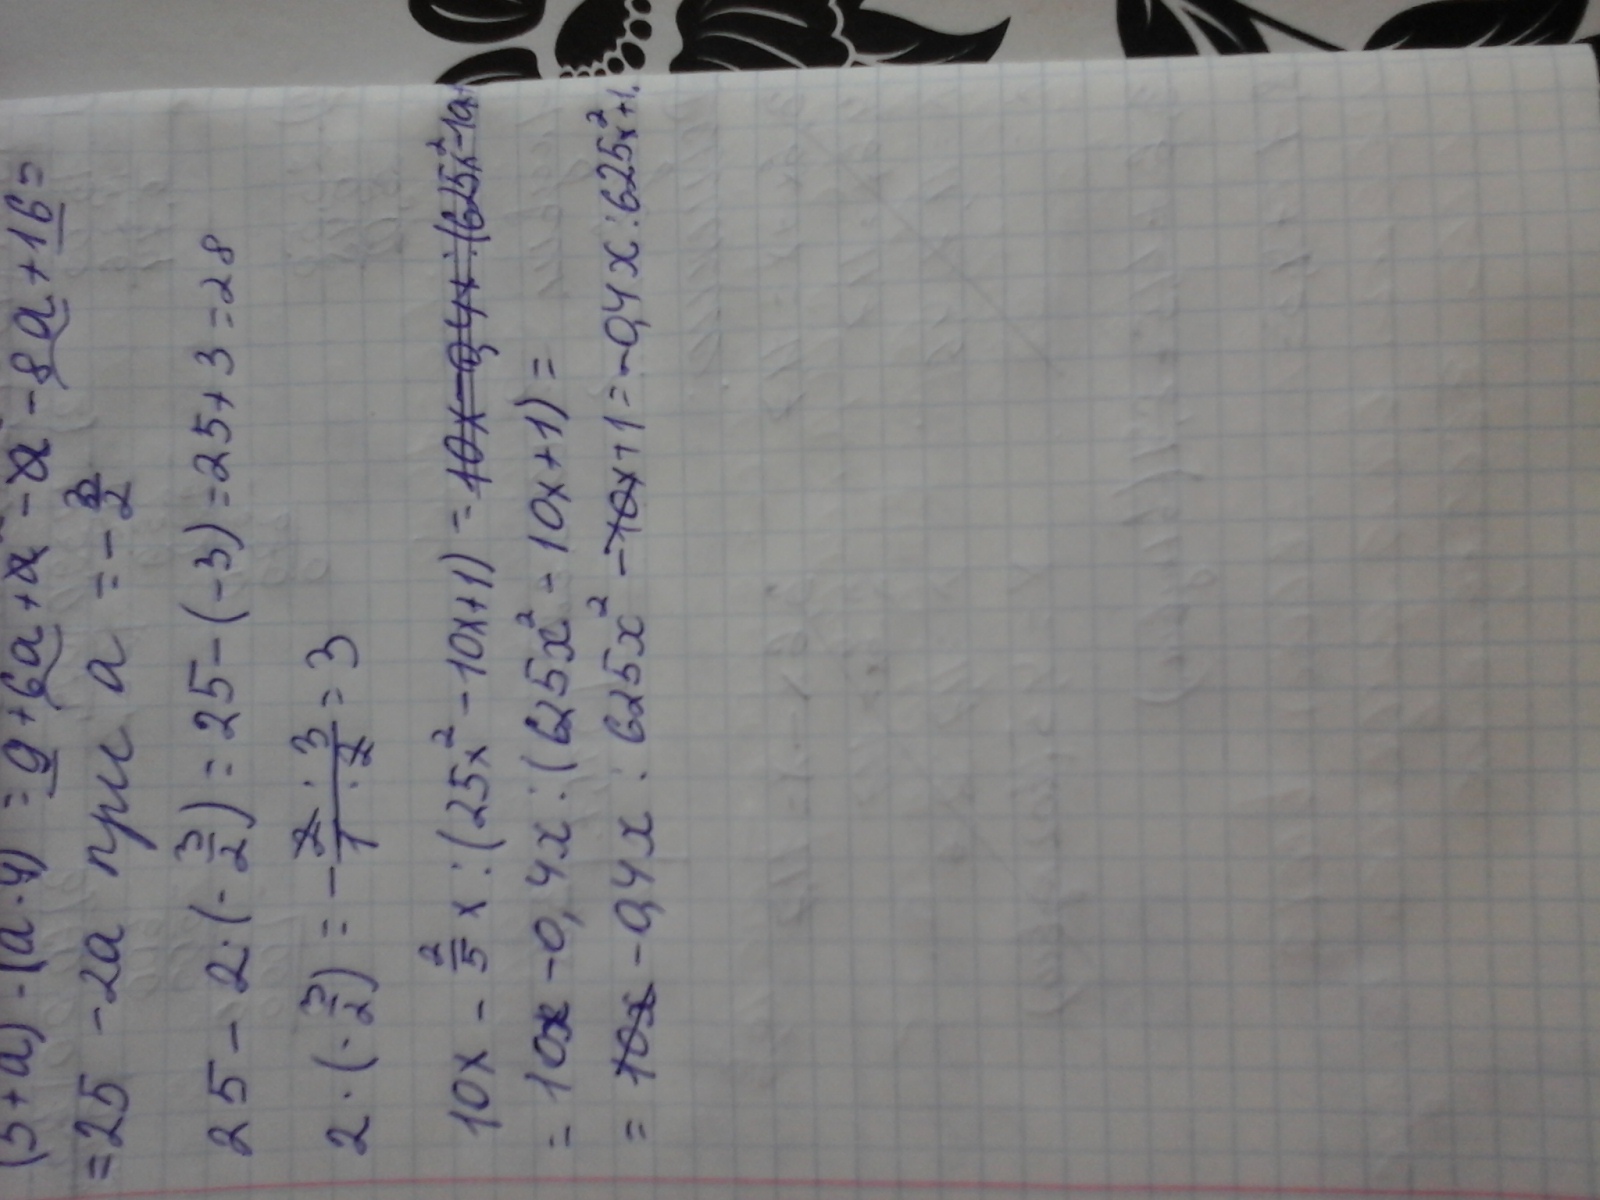 (3+a) - (a-4) = 9+6a+a - a - 8a+16=
=25 -2a при a = - 3/2
25 - 2·(- 3/2) = 25 - (-3) = 25+3 = 28
2·(- 3/2) = - 2·3/1·2 = 3
10x - 2/5 x : (25x² - 10x+1) = 10x - 0,4x : (625x² - 10x+
= 10x - 0,4x : (625x² - 10x+1) =
= 10x - 0,4x : 625x² - 10x+1 = -0,4x : 625x²+1.